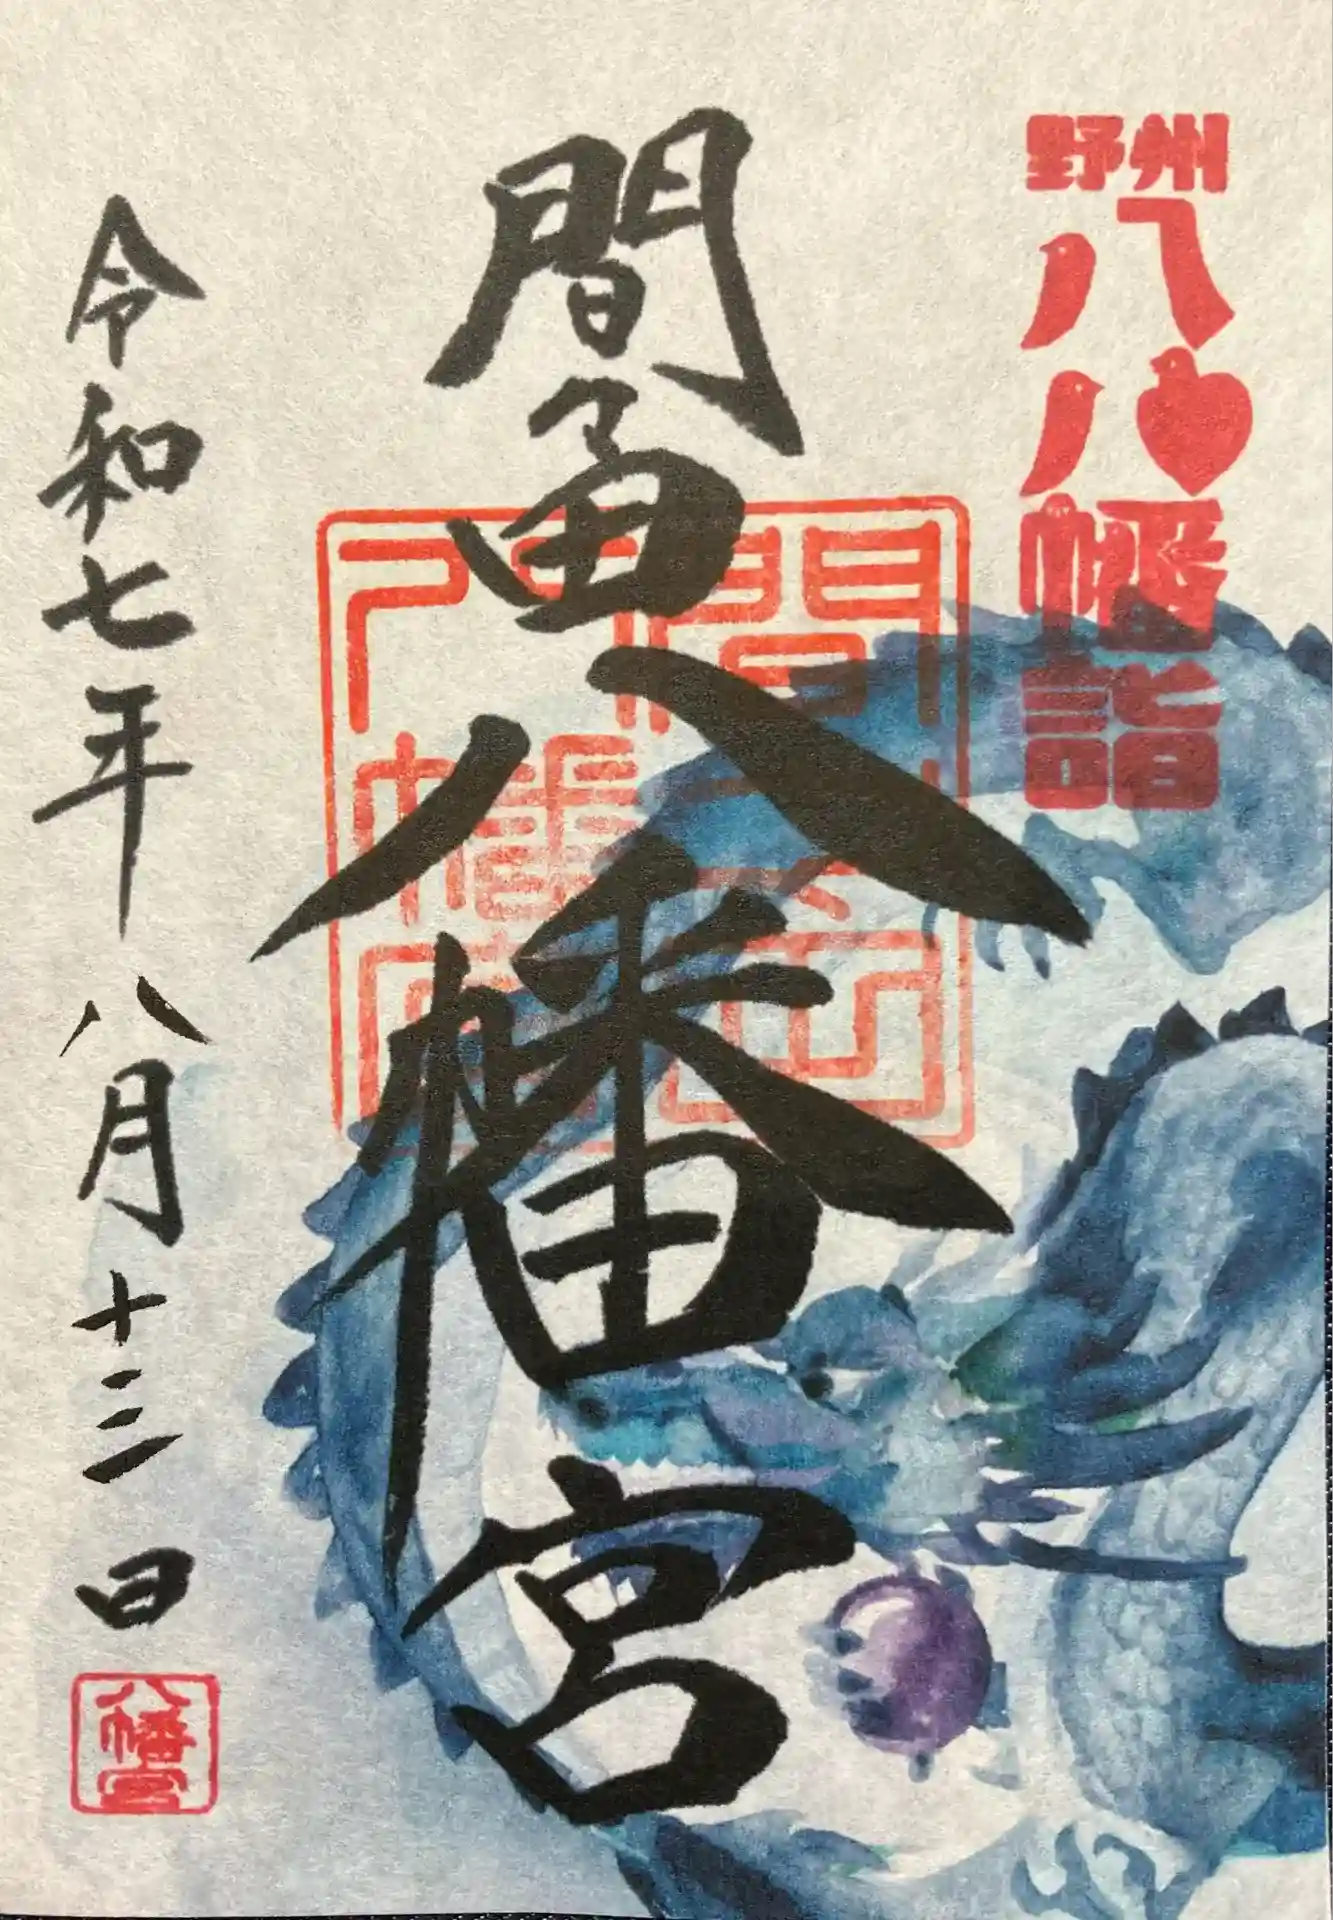 野州
八八幡詣
間々田八幡宮
令和七年八月十三日
八幡宮